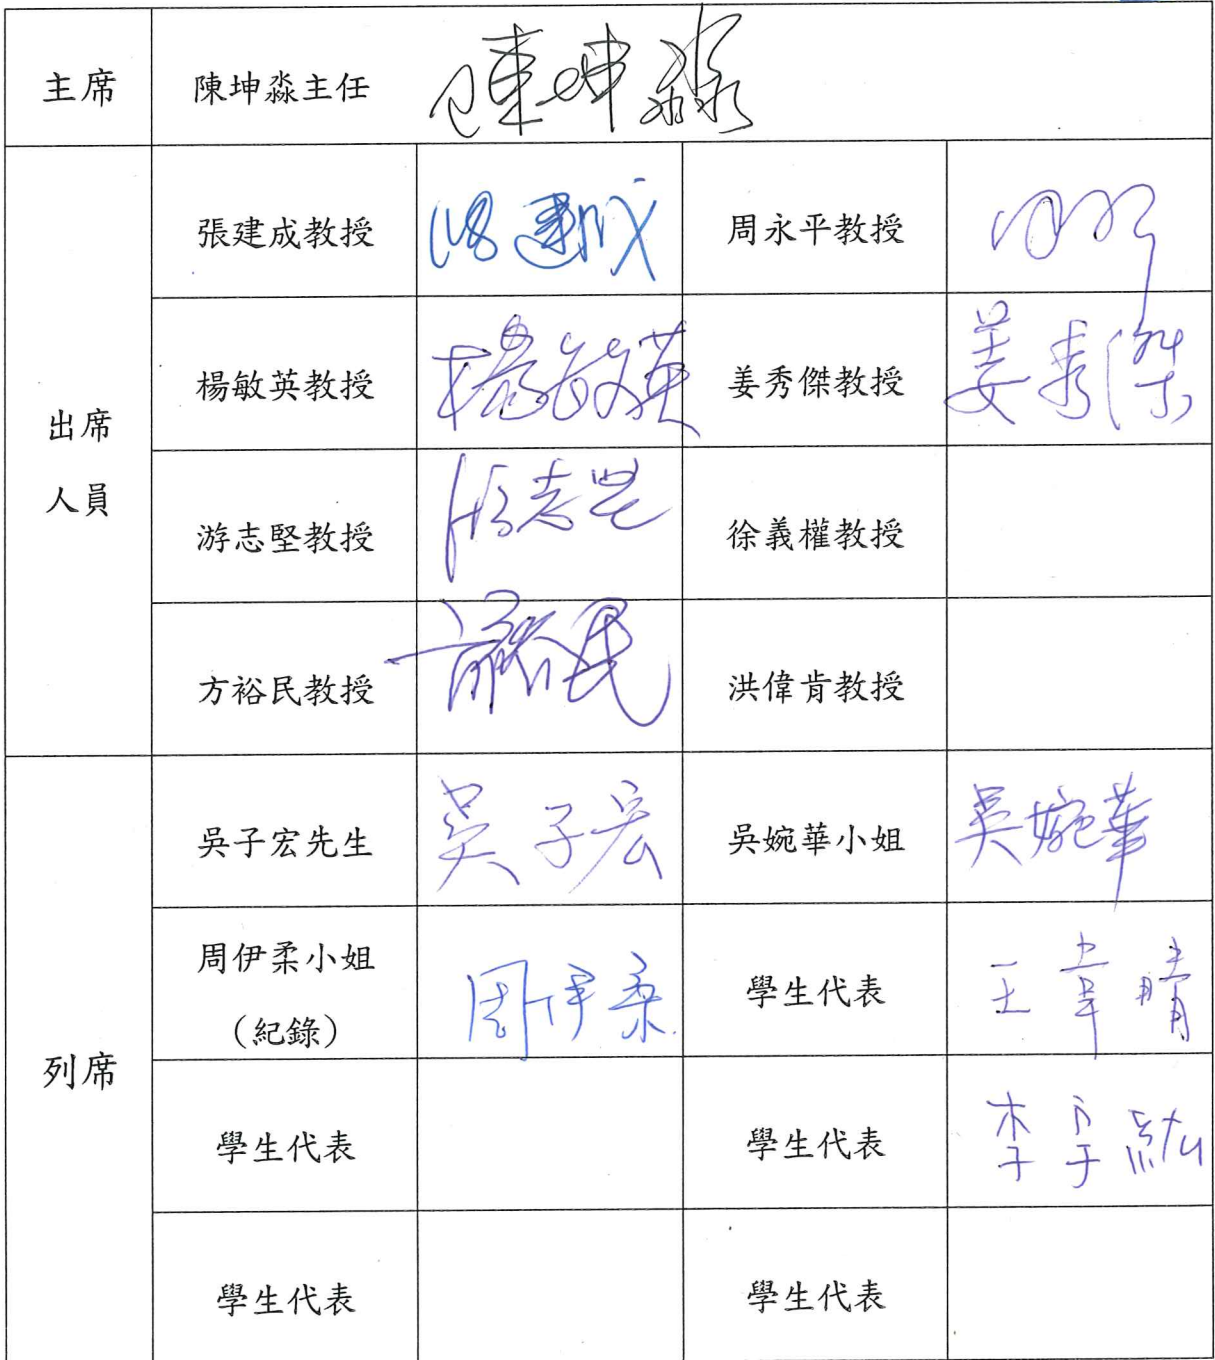 主席
陳坤淼主任 陳坤淼
出席
人員
張建成教授 張建成 周永平教授
楊敏英教授 楊敏英 姜秀傑教授 姜秀傑
游志堅教授 游志堅 徐義權教授
方裕民教授 方裕民 洪偉肯教授
列席
吳子宏先生 吳子宏 吳婉華小姐 吳婉華
周伊柔小姐
（紀錄） 周伊柔 學生代表 王韋晴
學生代表 學生代表 李宇紘
學生代表 學生代表